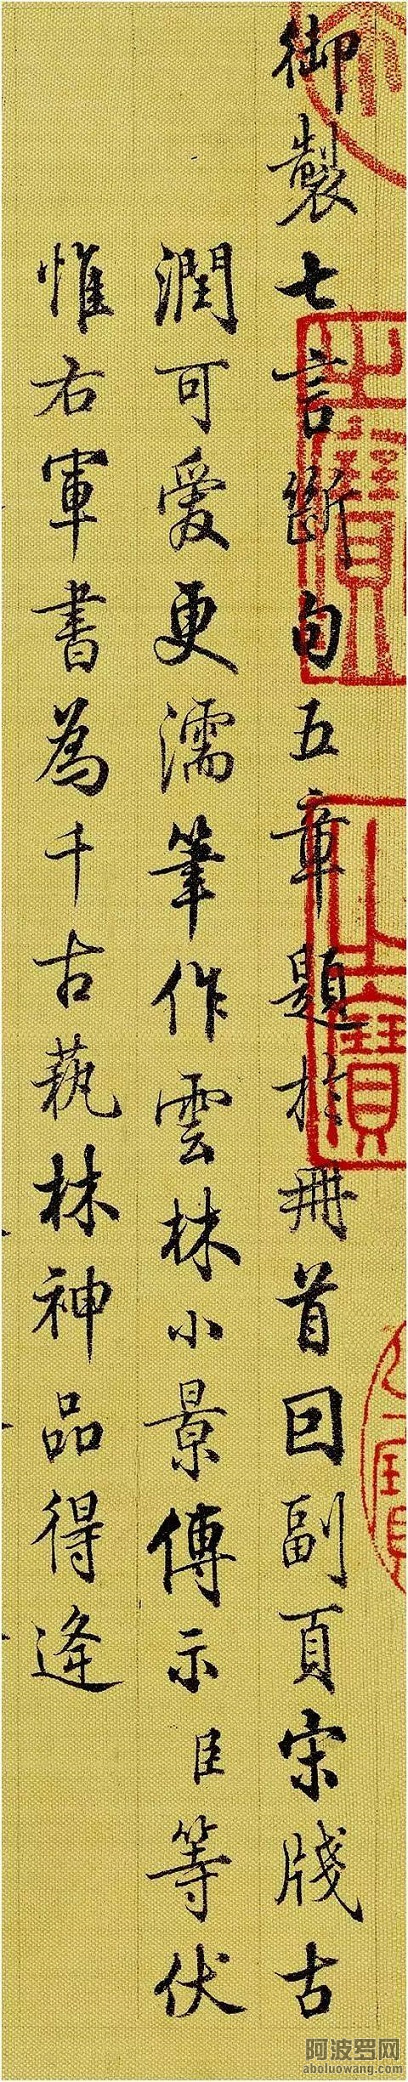 御製七言斷句五章題於冊首囙副頁宋牋古
潤可愛更濡筆作雲林小景傳示臣等伏
惟右軍書為千古蓺林神品得逢
之寶
之寶
阿波罗网
aboluowang.com